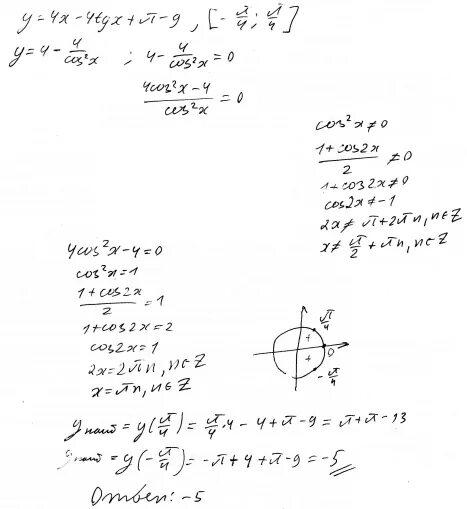 y = 4x - 4tgx + π - 9 , [-π/4; π/4]
y = 4 - 4/cos²x ; 4 - 4/cos²x = 0
(4cos²x - 4)/cos²x = 0
cos²x ≠ 0
(1 + cos2x)/2 ≠ 0
1 + cos2x ≠ 0
cos2x ≠ -1
2x ≠ π + 2πn, n∈Z
x ≠ π/2 + πn, n∈Z
4cos²x - 4 = 0
cos²x = 1
(1 + cos2x)/2 = 1
1 + cos2x = 2
cos2x = 1
2x = 2πn, n∈Z
x = πn, n∈Z
π/4
+
0
+
-π/4
y наиб = y(π/4) = π/4·4 - 4 + π - 9 = π + π - 13
y наиб = y(-π/4) = -π + 4 + π - 9 = -5
Ответ: -5